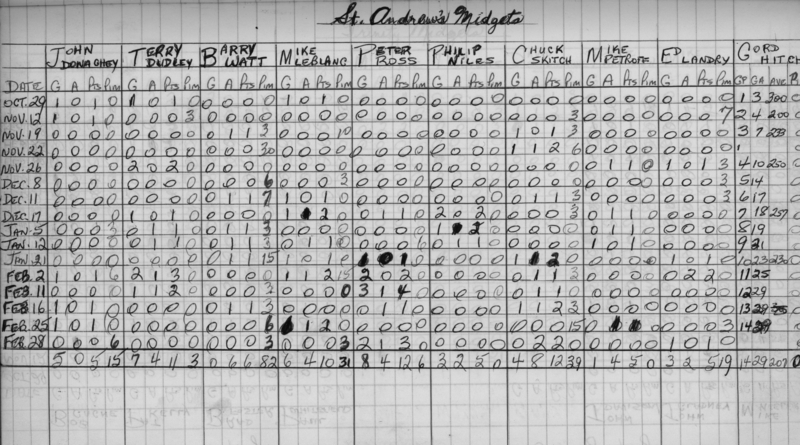 St. Andrew's Midgets
JOHN DONAGHEY TERRY DUDLEY BARRY WATT MIKE LEBLANC PETER ROSS PHILIP NILES CHUCK SKITCH MIKE PETROFF ED LANDRY GORD HITCH
DATE G A Pts Pim G A Pts Pim G A Pts Pim G A Pts Pim G A Pts Pim G A Pts Pim G A Pts Pim G A Pts Pim G A Pts Pim GP GA AVE
OCT. 29 1 0 1 0 1 0 1 0 0 0 0 0 1 0 1 0 0 0 0 0 0 0 0 0 0 0 0 0 0 0 0 0 0 0 0 0 1 3 300
NOV. 12 1 0 1 0 0 0 0 3 0 0 0 0 0 0 0 0 0 0 0 0 0 0 0 0 0 0 0 3 0 0 0 0 0 0 0 7 2 4 200
NOV. 19 0 0 0 0 0 0 0 0 0 1 1 3 0 0 0 10 0 0 0 0 0 0 0 0 1 0 1 3 0 0 0 0 0 0 0 0 3 7
NOV. 22 0 0 0 0 0 0 0 0 0 0 0 30 0 0 0 0 0 0 0 0 0 0 0 0 1 1 2 6 0 0 0 0 0 0 0 0
NOV. 26 0 0 0 0 2 0 2 0 0 0 0 0 0 0 0 0 0 0 0 0 0 0 0 0 0 0 0 0 0 1 1 0 1 0 1 3 4 10 250
DEC. 8 0 0 0 0 0 0 0 0 0 0 0 6 0 0 0 3 0 0 0 0 0 0 0 0 0 0 0 0 0 0 0 0 0 0 0 3 5 14
DEC. 11 0 0 0 0 0 0 0 0 0 1 1 7 1 0 1 0 0 0 0 0 0 0 0 0 0 1 1 3 0 0 0 0 0 0 0 3 6 17
DEC. 17 0 0 0 0 1 0 1 0 0 0 0 0 1 1 2 0 0 1 1 0 2 0 2 0 0 0 0 3 0 1 1 0 0 0 0 0 7 18 257
JAN. 5 0 0 0 3 0 1 1 0 0 1 1 3 0 0 0 0 0 0 0 0 1 2 0 0 0 0 0 0 1 1 0 0 0 0 0 8 19
JAN. 12 0 0 0 0 0 1 1 0 0 1 1 3 0 0 0 0 0 0 0 6 0 1 1 0 0 0 0 0 1 0 1 0 0 0 0 0 9 21
JAN. 21 0 0 0 0 0 0 0 0 0 1 1 15 1 0 1 0 1 0 1 0 0 0 0 0 1 2 0 0 0 0 0 1 0 1 0 10 23 230
FEB. 2 1 0 1 6 2 1 3 0 0 0 0 0 0 1 1 2 15 2 0 2 0 0 0 0 0 0 1 1 3 0 0 0 0 0 2 2 0 11 25
FEB. 11 0 0 0 0 1 1 2 0 0 0 0 3 0 0 0 0 3 1 4 0 0 0 0 0 0 1 1 0 0 0 0 0 0 0 0 12 29
FEB. 16 1 0 1 0 0 0 0 0 0 1 1 3 0 0 0 0 0 1 1 0 0 0 0 0 1 1 2 3 0 0 0 0 0 0 0 0
FEB. 25 1 0 1 0 0 0 0 0 0 0 0 6 1 2 0 0 0 0 0 0 0 0 0 0 0 0 15 0 0 0 0 0 3
FEB. 28 0 0 0 6 0 0 0 0 0 0 0 3 0 0 0 3 2 1 3 0 0 0 0 0 0 2 2 0 0 0 0 0 1 0 1 0
5 0 5 15 7 4 11 3 0 6 6 82 6 4 10 31 8 4 12 6 3 2 5 0 4 8 12 39 1 4 5 0 3 2 5 19 14 29 207 0